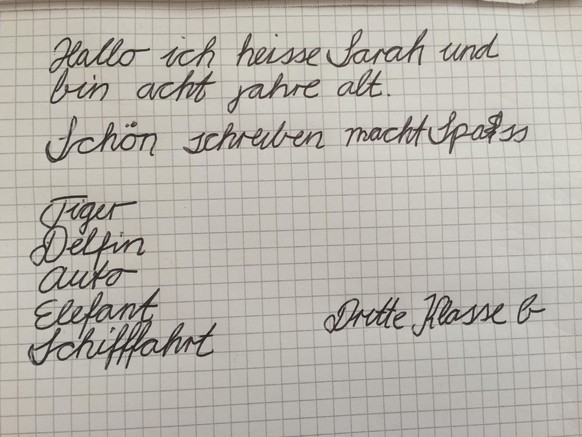 Hallo ich heisse Sarah und
bin acht jahre alt.
Schön schreiben macht Spass
Tiger
Delfin
Auto
Elefant
Schifffahrt
Dritte Klasse b